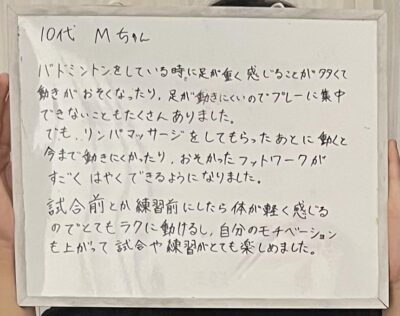 10代 Mちゃん
バドミントンをしている時に足が重く感じることが多くて
動きがおそくなったり、足が動きにくいのでプレーに集中
できないこともたくさんありました。
でも、リンパマッサージをしてもらったあとに動くと
今まで動きにくかったり、おそかったフットワークが
すごくはやくできるようになりました。
試合前とか練習前にしたら体が軽く感じる
のでとてもラクに動けるし、自分のモチベーション
も上がって試合や練習がとても楽しめました。